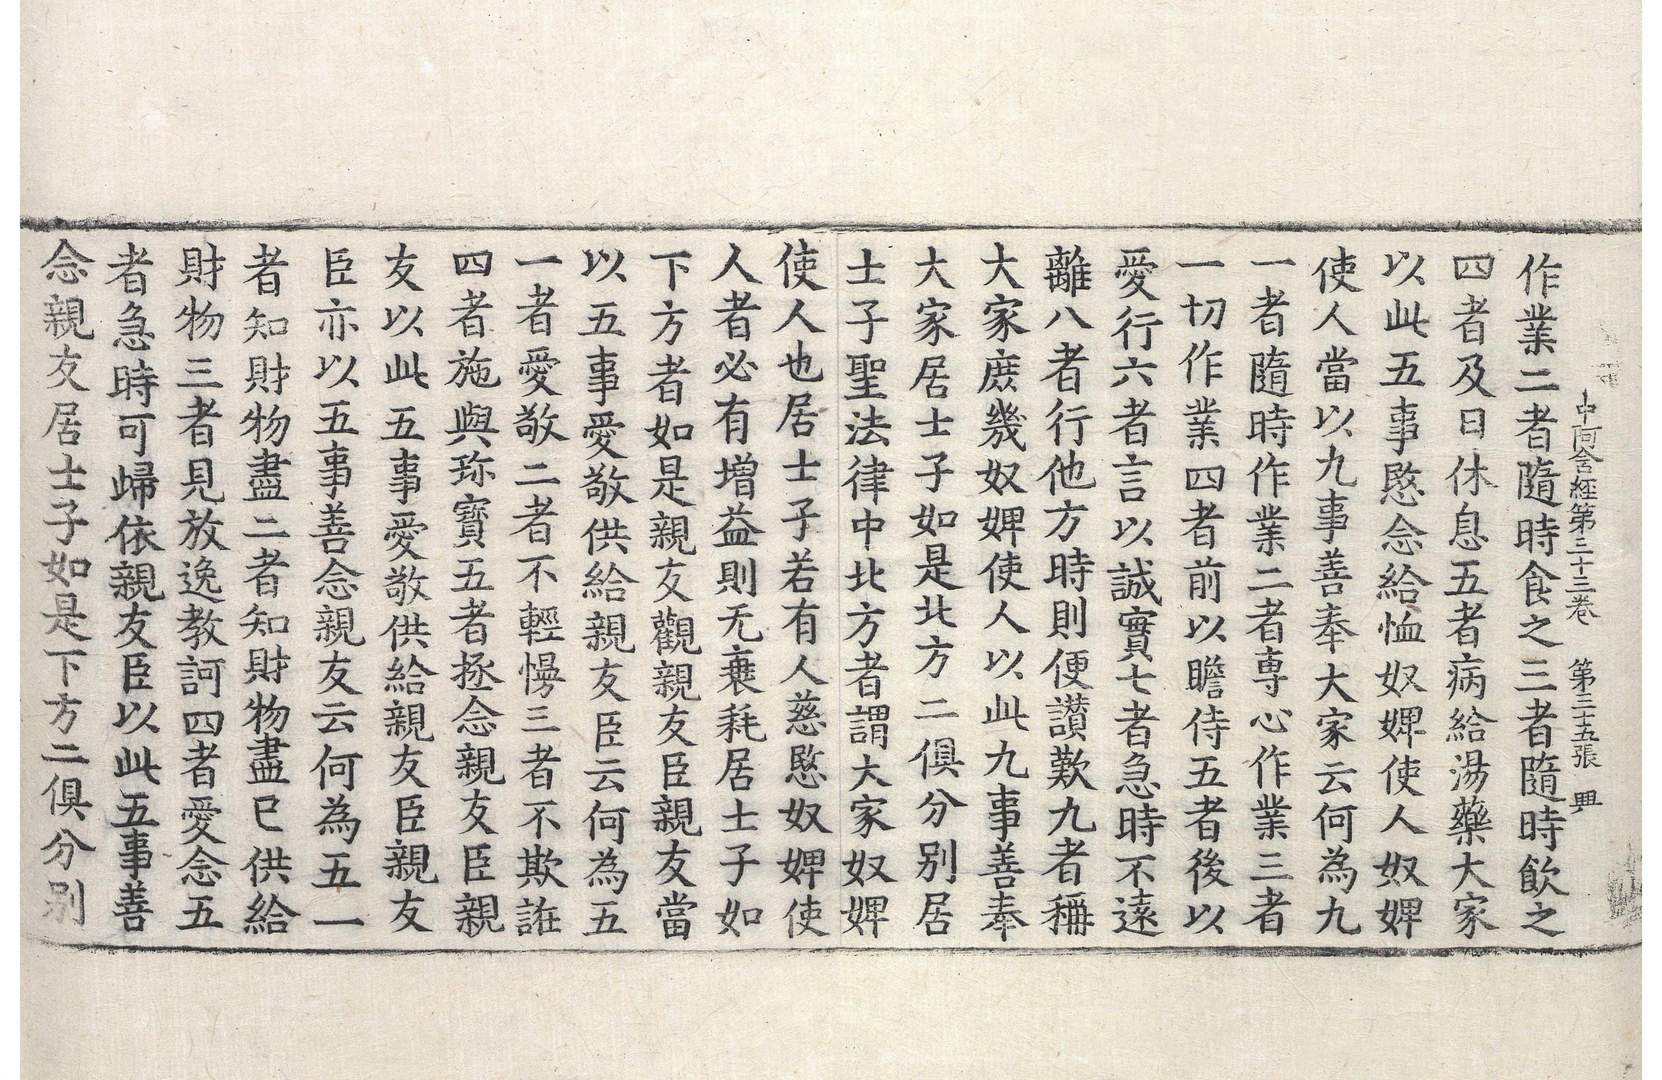 中阿含經第三十三卷 第三十五張 興
作業二者隨時食之三者隨時飲之
四者及日休息五者病給湯藥大家
以此五事愍念給恤奴婢使人奴婢
使人當以九事善奉大家云何為九
一者隨時作業二者専心作業三者
一切作業四者前以瞻侍五者後以
愛行六者言以誠實七者急時不遠
離八者行他方時則便讃歎九者稱
大家庶幾奴婢使人以此九事善奉
大家居士子如是北方二俱分别居
士子聖法律中北方者謂大家奴婢
使人也居士子若有人慈愍奴婢使
人者必有增益則无衰耗居士子如
下方者如是親友觀親友臣親友當
以五事愛敬供給親友臣云何為五
一者愛敬二者不輕慢三者不欺誑
四者施與珎寶五者拯念親友臣親
友以此五事愛敬供給親友臣親友
臣亦以五事善念親友云何為五一
者知財物盡二者知財物盡已供給
財物三者見放逸教訶四者愛念五
者急時可歸依親友臣以此五事善
念親友居士子如是下方二俱分别